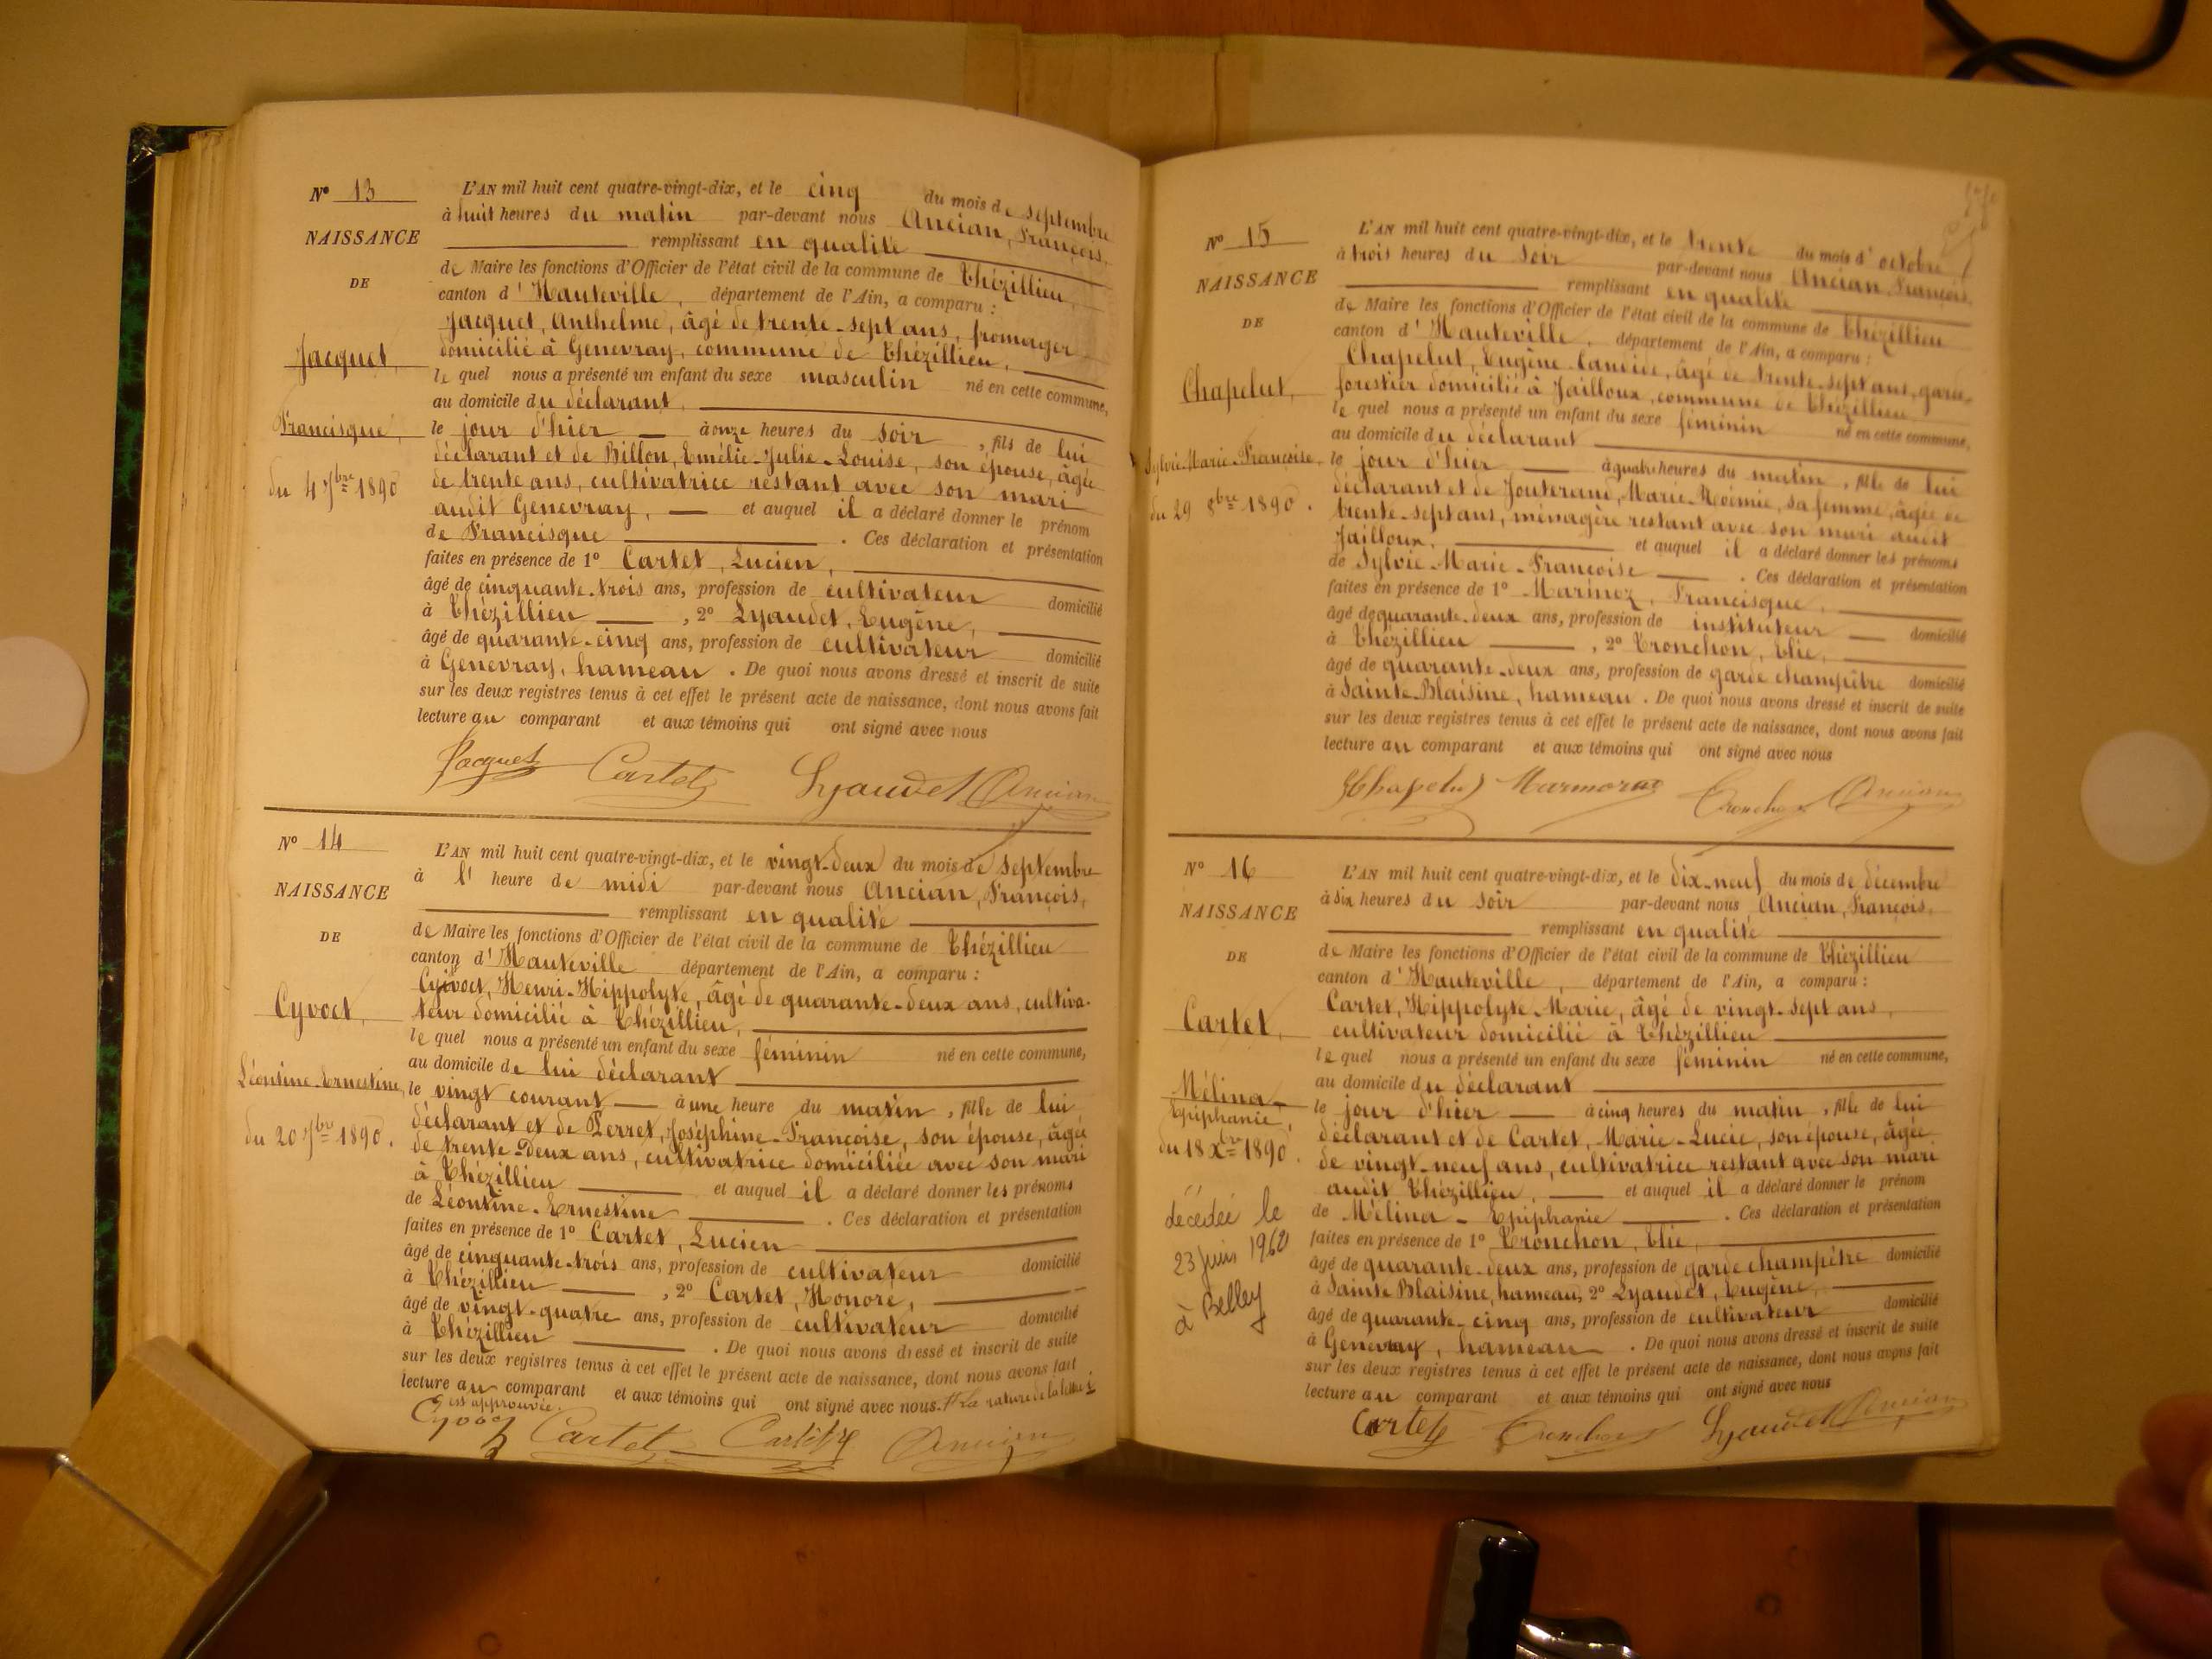 N° 13
NAISSANCE
DE
Jacquet,
Francisque,
du 4 7bre 1890
L'AN mil huit cent quatre-vingt-dix, et le cinq du mois de septembre
à huit heures du matin par-devant nous Ancian, François,
remplissant en qualité
de Maire les fonctions d'Officier de l'état civil de la commune de Thézillieu,
canton d'Hauteville, département de l'Ain, a comparu :
Jacquet, Anthelme, âgé de trente-sept ans, fromager
domicilié à Genevray, commune de Thézillieu,
lequel nous a présenté un enfant du sexe masculin né en cette commune,
au domicile du déclarant,
le jour d'hier à onze heures du soir, fils de lui
déclarant et de Billon, Emélie-Julie-Louise, son épouse, âgée
de trente ans, cultivatrice restant avec son mari
audit Genevray, et auquel il a déclaré donner le prénom
de Francisque . Ces déclaration et présentation
faites en présence de 1° Cartet, Lucien,
âgé de cinquante-trois ans, profession de cultivateur domicilié
à Thézillieu , 2° Lyaudet, Eugène,
âgé de quarante-cinq ans, profession de cultivateur domicilié
à Genevray, hameau . De quoi nous avons dressé et inscrit de suite
sur les deux registres tenus à cet effet le présent acte de naissance, dont nous avons fait
lecture au comparant et aux témoins qui ont signé avec nous
Jacquet Cartet Lyaudet Ancian
N° 14
NAISSANCE
DE
Cyvoct,
Léontine-Ernestine,
du 20 7bre 1890.
L'AN mil huit cent quatre-vingt-dix, et le vingt-deux du mois de septembre
à l'heure de midi par-devant nous Ancian, François,
remplissant en qualité
de Maire les fonctions d'Officier de l'état civil de la commune de Thézillieu
canton d'Hauteville département de l'Ain, a comparu :
Cyivoct, Henri-Hippolyte, âgé de quarante-deux ans, cultiva-
teur domicilié à Thézillieu,
lequel nous a présenté un enfant du sexe féminin né en cette commune,
au domicile de lui déclarant
le vingt courant à une heure du matin, fille de lui
déclarant et de Perret, Joséphine-Françoise, son épouse, âgée
de trente-deux ans, cultivatrice domiciliée avec son mari
à Thézillieu et auquel il a déclaré donner les prénoms
de Léontine-Ernestine . Ces déclaration et présentation
faites en présence de 1° Cartet, Lucien
âgé de cinquante-trois ans, profession de cultivateur domicilié
à Thézillieu , 2° Cartet, Honoré,
âgé de vingt-quatre ans, profession de cultivateur domicilié
à Thézillieu . De quoi nous avons dressé et inscrit de suite
sur les deux registres tenus à cet effet le présent acte de naissance, dont nous avons fait
lecture au comparant et aux témoins qui ont signé avec nous. La rature de la lettre i
est approuvée.
Cyvoct Cartet Cartet Ancian
N° 15
NAISSANCE
DE
Chapelut,
Sylvie-Marie-Françoise,
du 29 8bre 1890.
L'AN mil huit cent quatre-vingt-dix, et le trente du mois d'octobre
à trois heures du soir par-devant nous Ancian, François,
remplissant en qualité
de Maire les fonctions d'Officier de l'état civil de la commune de Thézillieu
canton d'Hauteville, département de l'Ain, a comparu :
Chapelut, Eugène-Candide, âgé de trente-sept ans, garde
forestier domicilié à Jailloux, commune de Thézillieu
lequel nous a présenté un enfant du sexe féminin né en cette commune,
au domicile du déclarant
le jour d'hier à quatre heures du matin, fille de lui
déclarant et de Jouterand, Marie-Noémie, sa femme, âgée de
trente-sept ans, ménagère restant avec son mari audit
Jailloux, et auquel il a déclaré donner les prénoms
de Sylvie-Marie-Françoise . Ces déclaration et présentation
faites en présence de 1° Marmoz, Francisque,
âgé de quarante-deux ans, profession de instituteur domicilié
à Thézillieu , 2° Tronchon, Elie,
âgé de quarante-deux ans, profession de garde champêtre domicilié
à Sainte-Blaisine, hameau . De quoi nous avons dressé et inscrit de suite
sur les deux registres tenus à cet effet le présent acte de naissance, dont nous avons fait
lecture au comparant et aux témoins qui ont signé avec nous
Chapelut Marmoz Tronchon Ancian
N° 16
NAISSANCE
DE
Cartet,
Mélina-
Epiphanie,
du 18 Xbre 1890.
décédée le
23 juin 1960
à Belley
L'AN mil huit cent quatre-vingt-dix, et le dix-neuf du mois de décembre
à six heures du soir par-devant nous Ancian, François,
remplissant en qualité
de Maire les fonctions d'Officier de l'état civil de la commune de Thézillieu
canton d'Hauteville, département de l'Ain, a comparu :
Cartet, Hippolyte-Marie, âgé de vingt-sept ans,
cultivateur domicilié à Thézillieu
lequel nous a présenté un enfant du sexe féminin né en cette commune,
au domicile du déclarant
le jour d'hier à cinq heures du matin, fille de lui
déclarant et de Cartet, Marie-Lucie, son épouse, âgée
de vingt-neuf ans, cultivatrice restant avec son mari
audit Thézillieu, et auquel il a déclaré donner le prénom
de Mélina-Epiphanie . Ces déclaration et présentation
faites en présence de 1° Tronchon, Elie,
âgé de quarante-deux ans, profession de garde champêtre domicilié
à Sainte Blaisine, hameau, 2° Lyaudet, Eugène,
âgé de quarante-cinq ans, profession de cultivateur domicilié
à Genevray, hameau . De quoi nous avons dressé et inscrit de suite
sur les deux registres tenus à cet effet le présent acte de naissance, dont nous avons fait
lecture au comparant et aux témoins qui ont signé avec nous
Cartet Tronchon Lyaudet Ancian